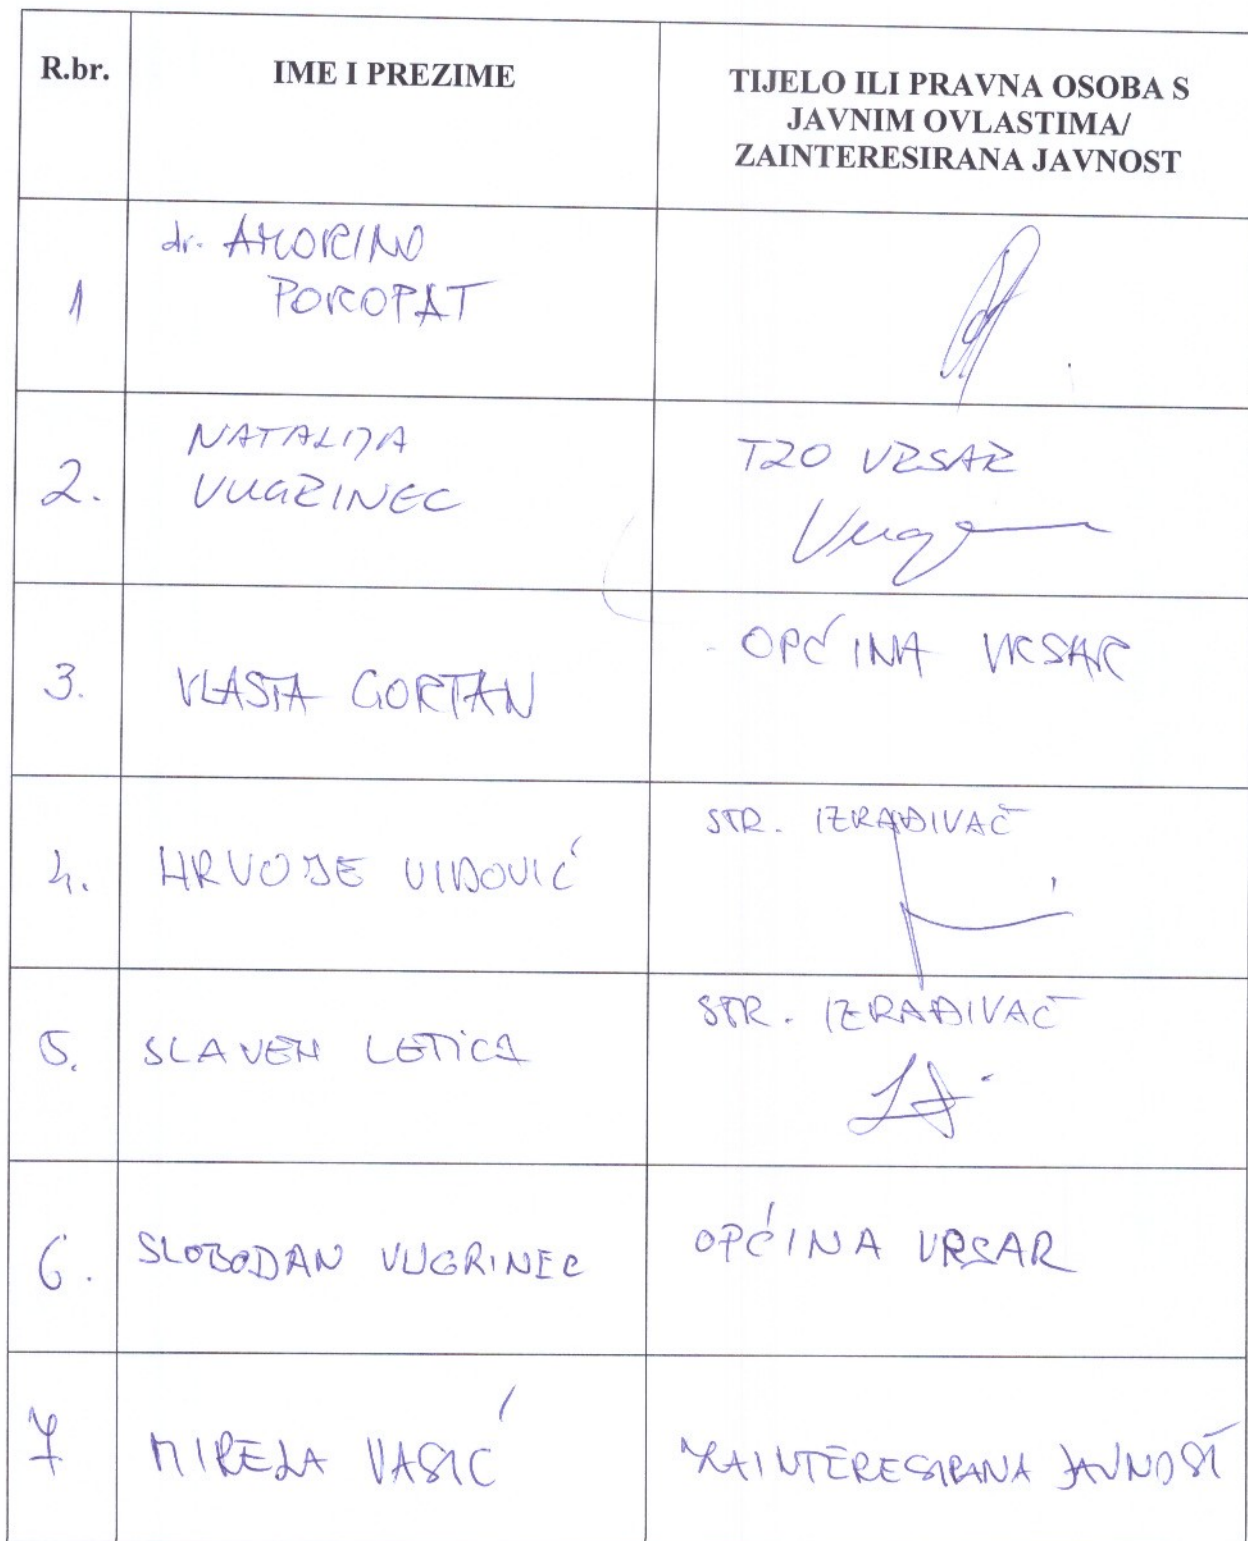 R.br.
IME I PREZIME
TIJELO ILI PRAVNA OSOBA S
JAVNIM OVLASTIMA/
ZAINTERESIRANA JAVNOST
1
dr. AMORINO
POROPAT
2.
NATALIJA
VUGRINEC
TZO VRSAR
3.
VLASTA GORTAN
OPĆINA VRSAR
4.
HRVOJE VIDOVIĆ
STR. IZRAĐIVAČ
5.
SLAVEN LETICA
STR. IZRAĐIVAČ
6.
SLOBODAN VUGRINEC
OPĆINA VRSAR
7
MIRELA VASIĆ
ZAINTERESIRANA JAVNOST